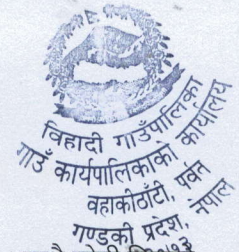 विहादी गाउँपालिका
गाउँ कार्यपालिकाको कार्यालय
वहाकीठाँटी, पर्वत
गण्डकी प्रदेश, नेपाल